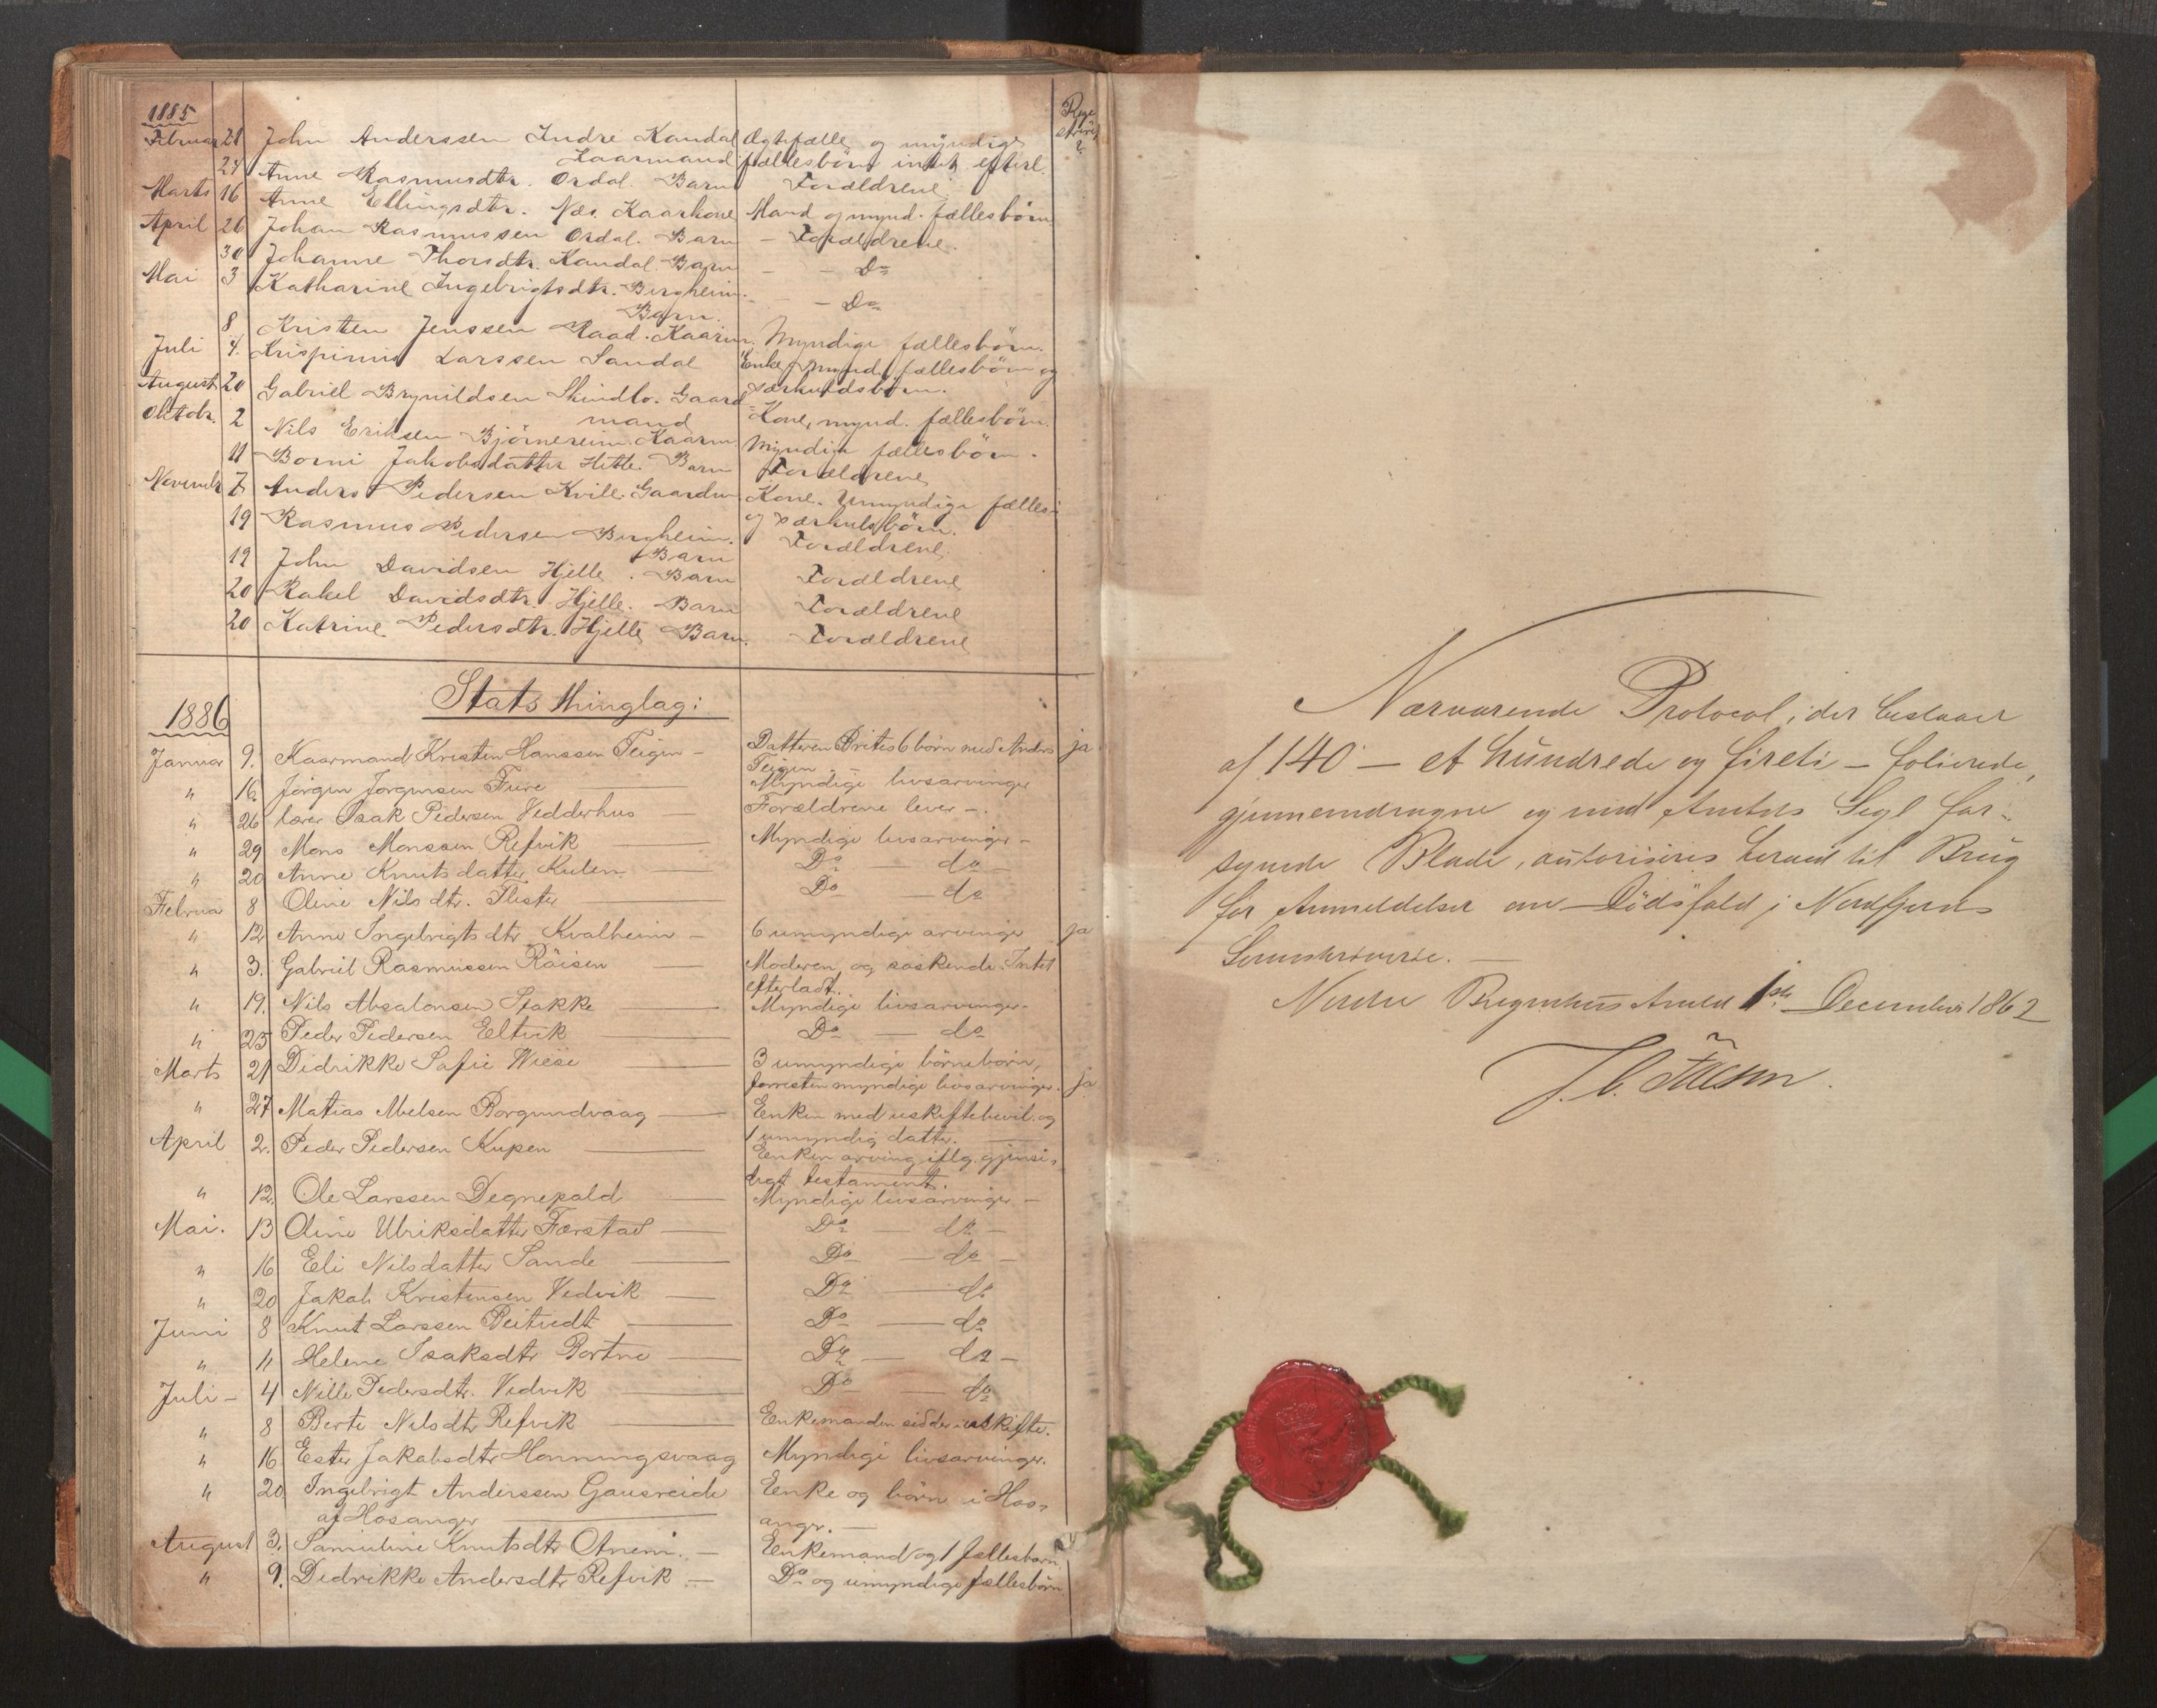 1885
Regi
strert
?
Februar 21 John Anderssen Indre Kandal Ægtefælle og myndige
Kaarmand fællesbörn intet efterl.
24 Anne Rasmusdtr. Ordal. Barn Forældrene
Marts 16 Anne Ellingsdtr. Næs. Kaarkone Mand og mynd. fællesbörn
April 26 Johan Rasmussen Ordal. Barn – Forældrene.
30 Johanne Thorsdtr. Kandal. Barn – – Do
Mai 3 Katharine Ingebrigtsdtr. Bergheim. – – Do
Barn.
8 Kristen Jenssen Raad. Kaarm. Myndige fællesbörn.
Juli 4. Krispinus Larssen Sandal Enke, mynd. fællesbörn og
særkuldsbörn.
August 20 Gabriel Brynildsen Skindlo. Gaard
mand Kone, mynd. fællesbörn.
Oktobr. 2 Nils Eriksen Björnereim. Kaarm Myndige fællesbörn.
11 Borni Jakobsdatter Hitle. Barn Forældrene
Novembr 7 Anders Pedersen Kvile. Gaardm Kone. Umyndige fælles-
og særkulsbörn.
19 Rasmus Pedersen Bergheim. Forældrene.
Barn
19 John Davidsen Hjelle. Barn Forældrene
20 Rakel Davidsdtr. Hjelle. Barn Forældrene
20 Katrine Pedersdtr. Hjelle Barn. Forældrene
Stats thinglag:
1886
Januar 9. Kaarmand Kristen Hanssen Teigen – Datteren Brites 6 börn med Anders ja
Teigen –
" 16 Jörgen Jörgensen Fure Myndige livsarvinger
" 26 lærer Isak Pedersen Vedderhus – Forældrene lever –.
" 29 Mons Monssen Refvik Myndige livsarvinger –
" 20 Anne Knutsdatter Kulen Do – do –
Februar 8 Oline Nilsdtr. Flister Do – do
" 12 Anne Ingebrigtsdtr Kvalheim – 6 umyndige arvinge ja
" 3. Gabriel Rasmussen Röisen Moderen og söskende. Intet
efterladt.
" 19. Nils Absalonsen Stakke Myndige livsarvinger.
" 25 Peder Pedersen Eltvik Do – do
Marts 21 Didrikke Sofie Wiese 3 umyndige börnebörn,
forresten myndige livsarvinger. ja
" 27 Matias Abelsen Borgundvaag Enken med uskiftebevil. og
1 umyndig datter.
April 2. Peder Pedersen Kupen Enken arving iflg. gjensi-
digt testament.
" 12. Ole Larssen Degnepold Myndige livsarvinger –
Mai. 13 Oline Ulriksdatter Færstad Do – do –
" 16 Eli Nilsdatter Sande Do – do –
" 20 Jakob Kristensen Vedvik Do – do
Juni 8 Knut Larssen Leitvedt Do – do
" 11 Helene Isaksdtr Bortne Do – do –
Juli – 4 Nille Pedersdtr. Vedvik Do – do
" 8 Berte Nilsdtr Refvik Enkemanden sidder i uskifte.
" 16 Ester Jakobsdtr Honningsvaag Myndige livsarvinger.
" 20. Ingebrigt Anderssen Gausreide Enke og börn i Hos-
af Hosanger anger. –
August 3. Samueline Knutsdtr Otneim. – Enkemand og 1 fællesbarn
" 9. Didrikke Andersdtr Refvik – Do og umyndige fællesbörn
Nærværende Protocol, der bestaaer
af 140 – et hundrede og fireti – folierede,
gjennemdragne og med Amtets Segl for-
synede Blade, autoriseres herved til Brug
for Anmeldelser om Dödsfald i Nordfjords
Sorenskriverie. –
Nordre Bergenhus Amt d. 1ste December 1862